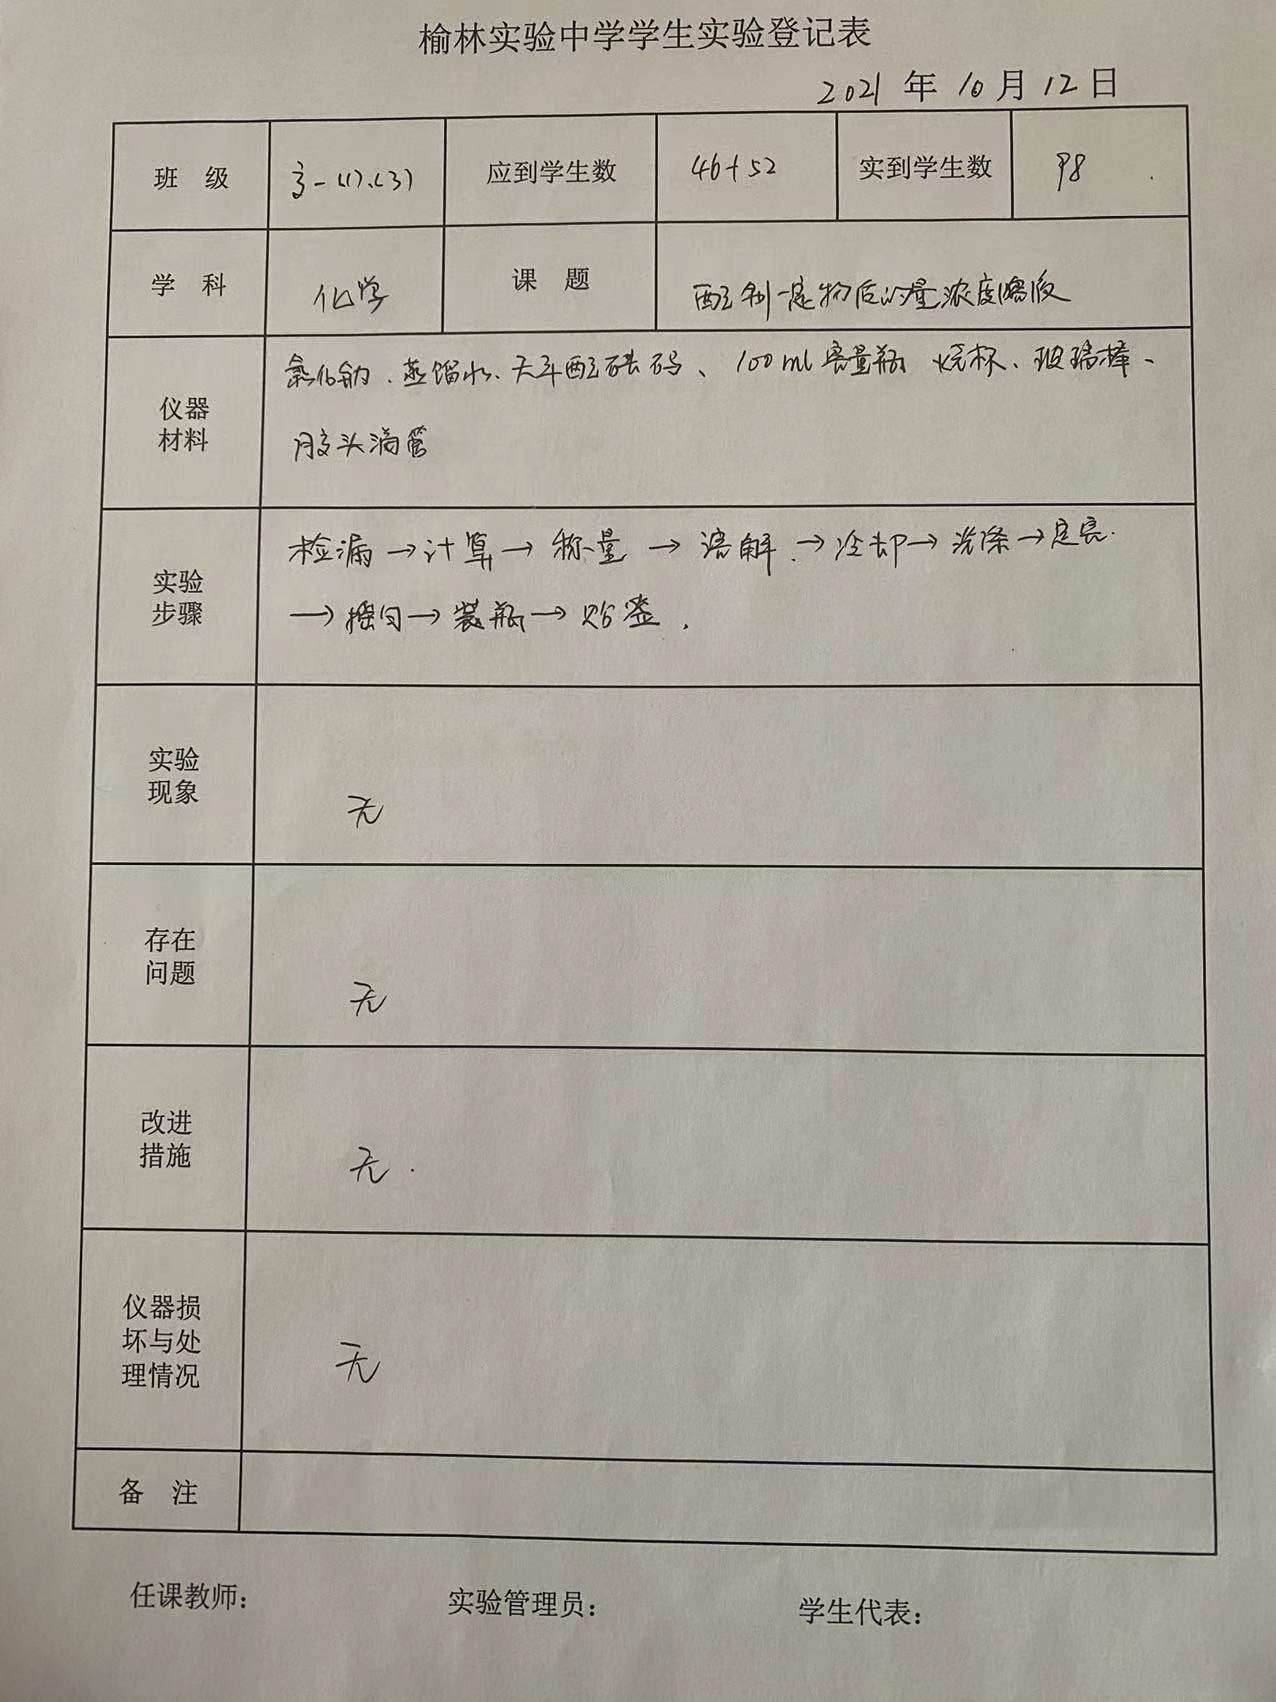 榆林实验中学学生实验登记表
2021 年 10 月 12 日
班 级 高一(1).(3) 应到学生数 46+52 实到学生数 98
学 科 化学 课 题 配制一定物质的量浓度溶液
仪器材料
氯化钠、蒸馏水、天平配砝码、100ml容量瓶 烧杯、玻璃棒、
胶头滴管
实验步骤
检漏→计算→称量→溶解→冷却→洗涤→定容
→摇匀→装瓶→贴签.
实验现象
无
存在问题
无
改进措施
无.
仪器损坏与处理情况
无
备 注
任课教师: 实验管理员: 学生代表: